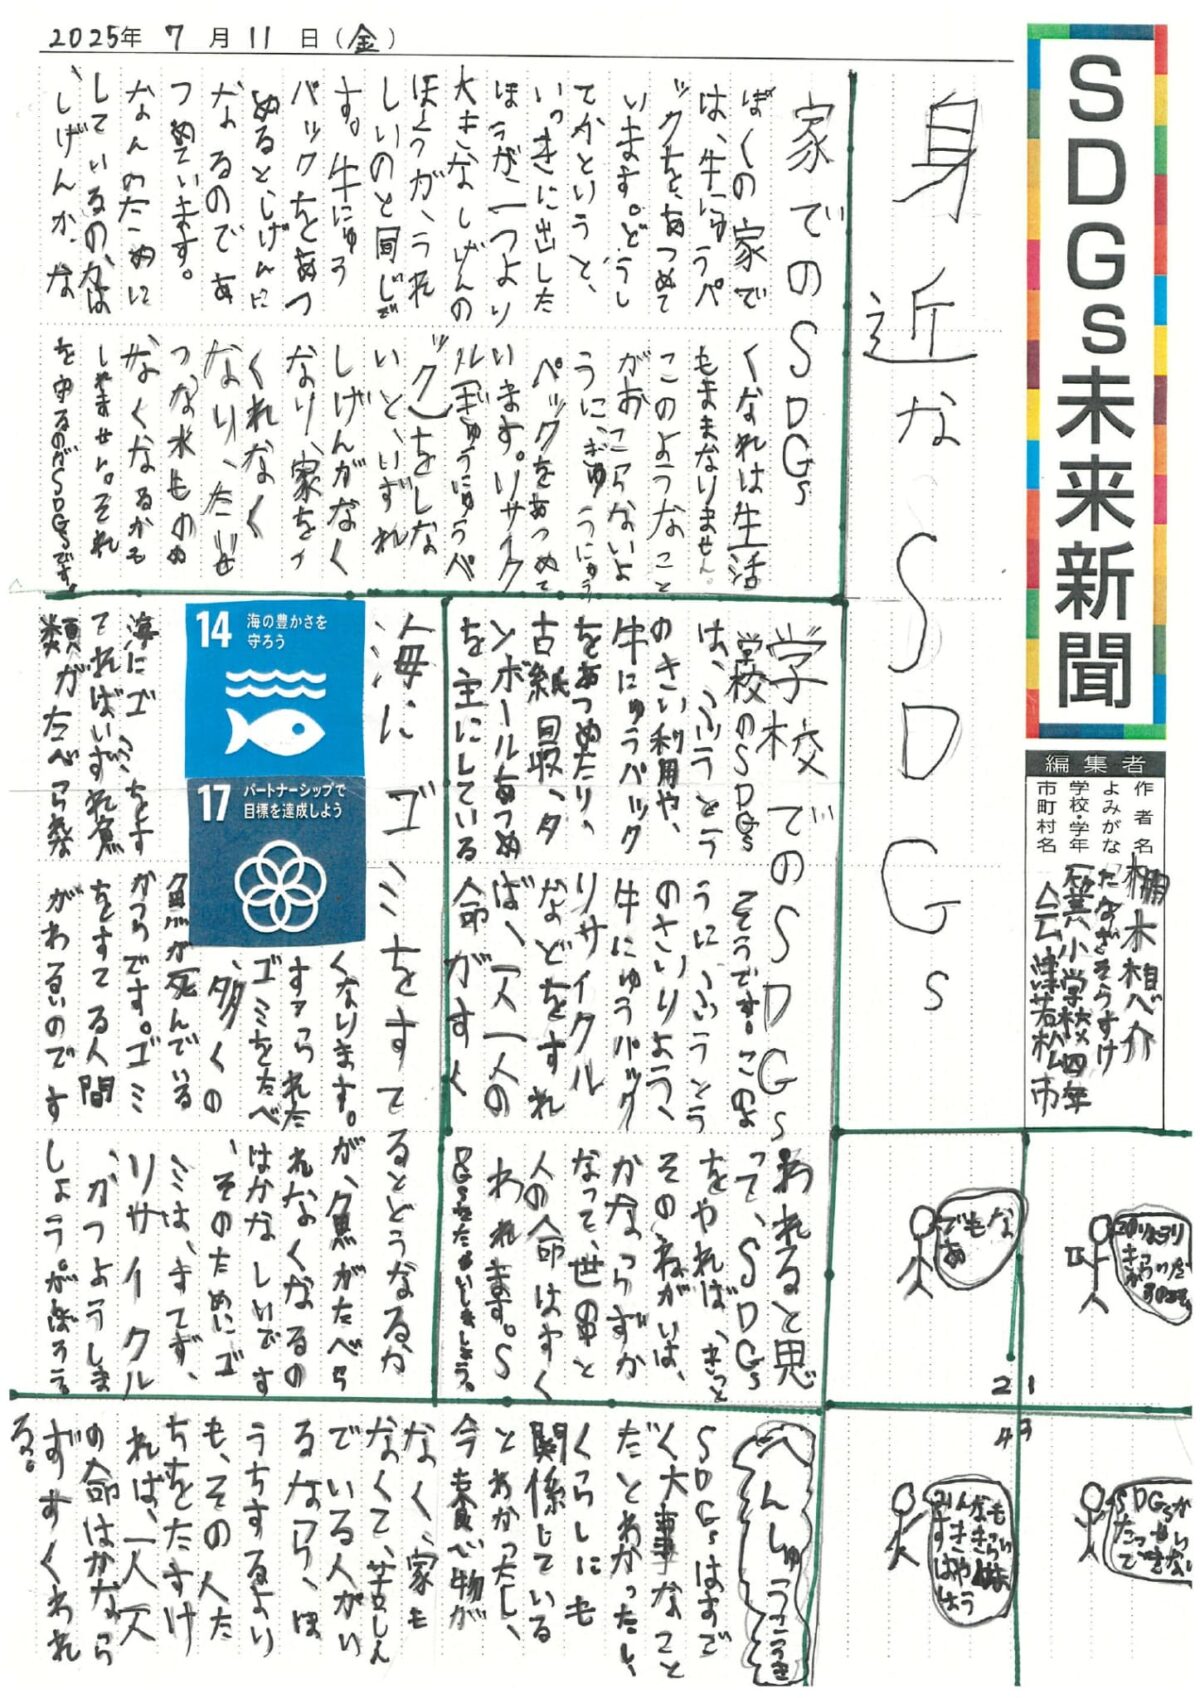 2025年 7月11日(金)
SDGs未来新聞
編集者
作者名
よみがな たなぎそうすけ
学校・学年 一箕小学校四年
市町村名 会津若松市
身近なSDGs
家でのSDGs
ぼくの家で
は、牛にゅうパ
ックを、あつめて
います。どうし
てかというと、
いっきに出した
ほうが、一つより
大きなしげんの
ほうが、うれ
しいのと同じで
す。牛にゅう
パックをあつ
めると、しげんに
なるのであ
つめています。
なんのために
しているのかは
、しげんが、な
くなれは生活
もままなりません。
このようなこと
がおこらないよ
うに、ぎゅうにゅう
パックをあつめて
います。リサイク
ル(ぎゅうにゅうパ
ック)をしな
いと、いずれ
しげんがなく
なり、家をつ
くれなく
なり、たいせ
つな水もの
なくなるかも
しれません。それ
を守るのがSDGsです。
学校でのSDGs
学校のSDGs
は、ふうとう
のさい利用や、
牛にゅうパック
をあつめたり、
古紙回収、ダ
ンボールあつめ
を主にしている
そうです。このよ
うに、ふうとう
のさいりよう、
牛にゅうパック
リサイクル
などをすれ
ば、一人一人の
命がすく
われると思
って、SDGs
をやれば、きっと
そのねがいは、
かならずか
なって、世界と
人の命はすく
われます。S
海にゴミをすてるとどうなるか
14 海の豊かさを
守ろう
17 パートナーシップで
目標を達成しよう
海にゴミをす
てればいずれ魚
類がたべら
くなります。が、魚がたべら
すてられた
ゴミをたべ
、多くの
魚が死んでいる
からです。ゴミ
をすてる人間
がわるいのです
れなくなるの
はかなしいです
、そのためにゴ
ミは、すてず、
リサイクル
、がつようしま
しょう。がんばろう
でもな
あ
2
1
4
3
へんしゅうこうき
SDGsはすご
く大事なこと
だとわかったし、
くらしにも
関係している
とわかったし、
今食べ物が
なく、家も
なくて、苦しん
でいる人がい
るなら、ほ
うちするより
も、その人た
ちをたすけ
れば、一人一人
の命はかなら
ずすくわれ
る。